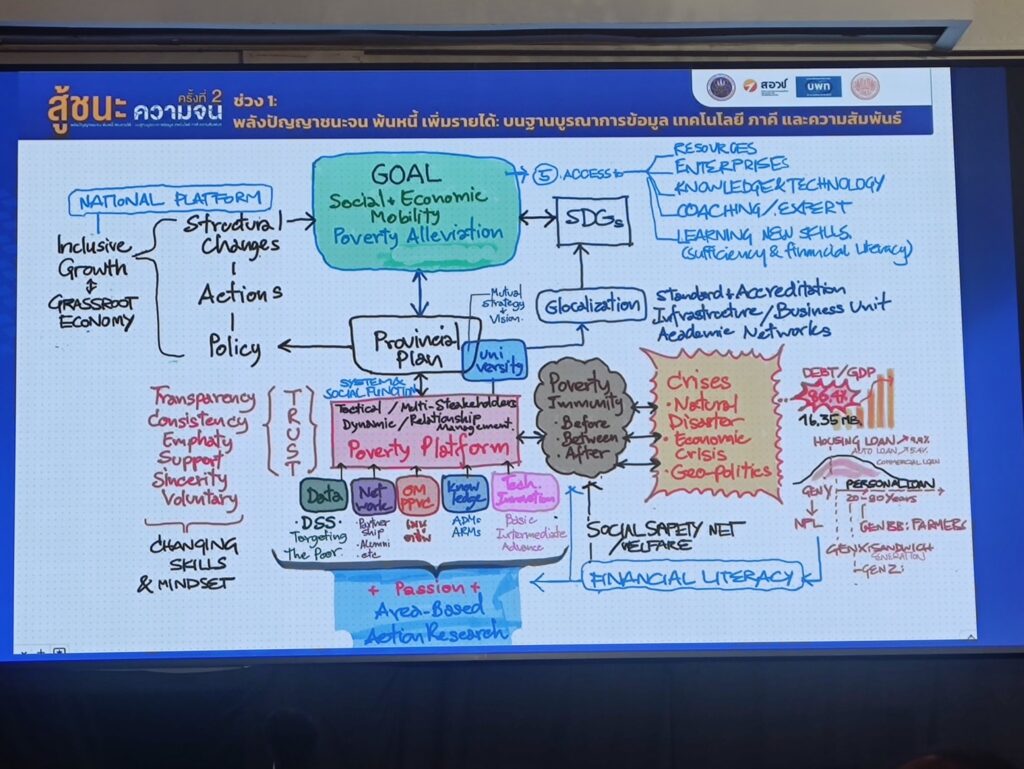 สู้ชนะ
ความจน
ครั้งที่ 2
ช่วง 1:
พลังปัญญาชนะจน พ้นหนี้ เพิ่มรายได้: บนฐานบูรณาการข้อมูล เทคโนโลยี ภาคี และความสัมพันธ์
สอวช
บพท
NATIONAL PLATFORM
Inclusive
Growth
GRASSROOT
ECONOMY
Structural
Changes
Actions
Policy
GOAL
Social + Economic
Mobility
Poverty Alleviation
5 ACCESS to
RESOURCES
ENTERPRISES
KNOWLEDGE & TECHNOLOGY
COACHING/EXPERT
LEARNING NEW SKILLS
(sufficiency & financial literacy)
SDGs
Glocalization
Standard + Accreditation
Infrastructure/Business Unit
Academic Networks
Mutual
Strategy
+
Vision
Provincial
Plan
Uni
versity
SYSTEM &
SOCIAL FUNCTION
Tactical / Multi-Stakeholders
Dynamic / Relationship
Management.
Poverty Platform
Transparency
Consistency
Emphaty
Support
Sincerity
Voluntary
TRUST
CHANGING
SKILLS
& MINDSET
Poverty
Immunity
Before
· Between
· After
Crises
· Natural
Disaster
· Economic
Crisis
· Geo-politics
DEBT/GDP
86.4%
16.35 ลบ.
HOUSING LOAN
AUTO LOAN
COMMERCIAL LOAN
PERSONAL LOAN
GEN Y
20-80 Years
NPL
GEN BB: FARMERS
GEN X: SANDWICH
GENERATION
GEN Z:
Data
Net
work
OM
PPVC
Know
ledge
Tech.
Innovation
· DSS·
Targeting
The Poor
Partner
ship
· Alumni
etc
ADMs
ARMs
Basic
Intermediate
Advance
SOCIAL SAFETY NET
/WELFARE
FINANCIAL LITERACY
+ Passion +
Area-Based
Action Research